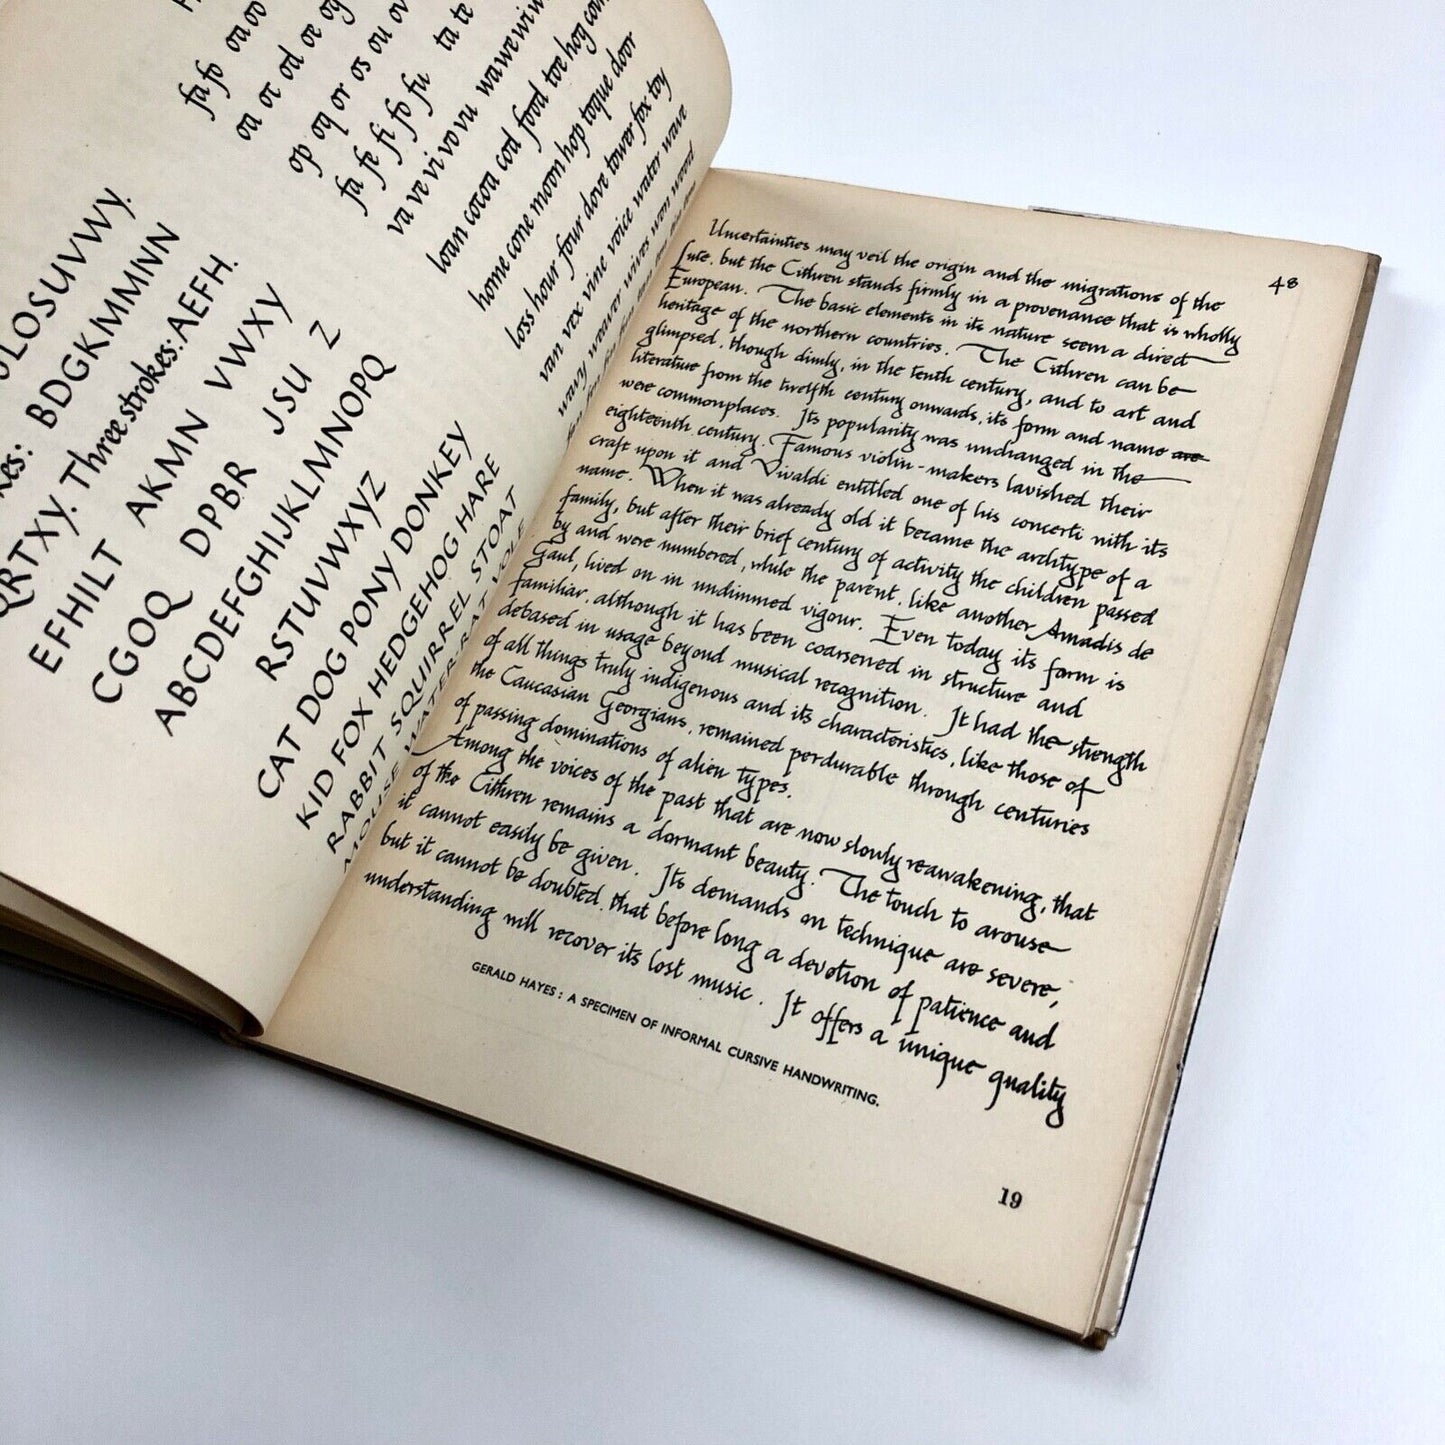 fa fo oa oo
oa oc od oe og
op oq or os ou ov
fa fe fi fo fu ta te
va ve vi vo vu wa we wi
loan cocoa cod food toe hog
home cone moon hop toque door
loss hour four dove tower fox toy
van vex vine voice water wave
wavy weaver wives won wood
LOSUVWY.
BDGKMMNN
QRTXY. Three strokes: AEFH.
EFHILT AKMN VWXY
CGOQ DPBR JSU Z
ABCDEFGHIJKLMNOPQ
RSTUVWXYZ
CAT DOG PONY DONKEY
KID FOX HEDGEHOG HARE
RABBIT SQUIRREL STOAT
MOUSE WATER-RAT VOLE
48
Uncertainties may veil the origin and the migrations of the
lute, but the Cithren stands firmly in a provenance that is wholly
European. The basic elements in its nature seem a direct
heritage of the northern countries. The Cithren can be
glimpsed, though dimly, in the tenth century, and to art and
literature from the twelfth century onwards, its form and name are
were commonplaces. Its popularity was unchanged in the
eighteenth century. Famous violin-makers lavished their
craft upon it and Vivaldi entitled one of his concerti with its
name. When it was already old it became the archtype of a
family, but after their brief century of activity the children passed
by and were numbered, while the parent, like another Amadis de
Gaul, lived on in undimmed vigour. Even today its form is
familiar, although it has been coarsened in structure and
debased in usage beyond musical recognition. It had the strength
of all things truly indigenous and its characteristics, like those of
the Caucasian Georgians, remained perdurable through centuries
of passing dominations of alien types.
Among the voices of the past that are now slowly reawakening, that
of the Cithren remains a dormant beauty. The touch to arouse
it cannot easily be given. Its demands on technique are severe,
but it cannot be doubted, that before long a devotion of patience and
understanding will recover its lost music. It offers a unique quality
GERALD HAYES: A SPECIMEN OF INFORMAL CURSIVE HANDWRITING.
19